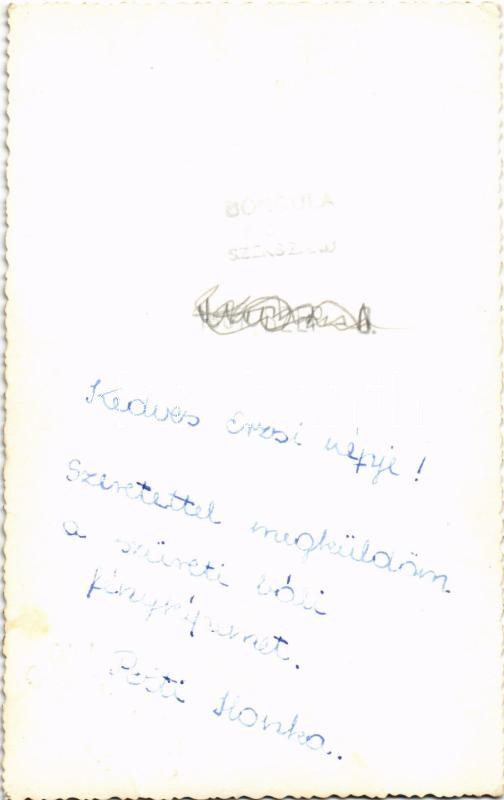 SZEKSZÁRD
Kedves Erzsi népje!
Szeretettel megküldöm
a szüreti báli
fényképemet.
Pósti Ilonka..